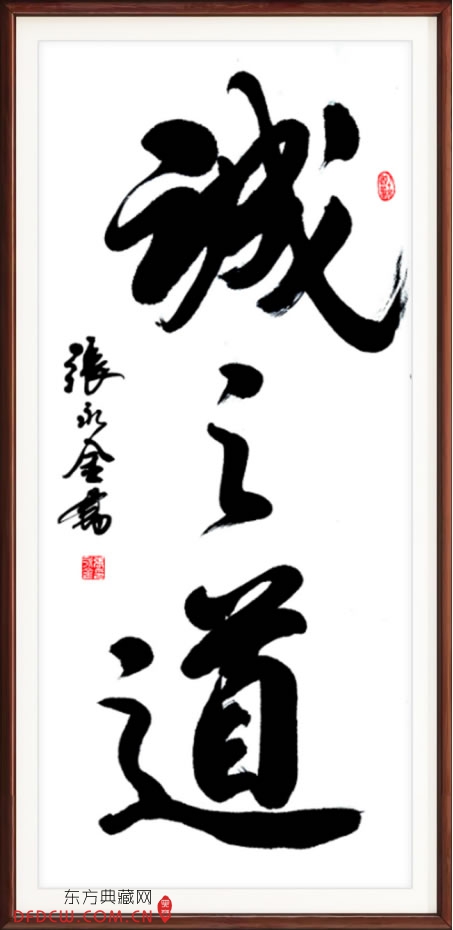 誠之道
張永金
东方典藏网
DFDCW.COM.CN